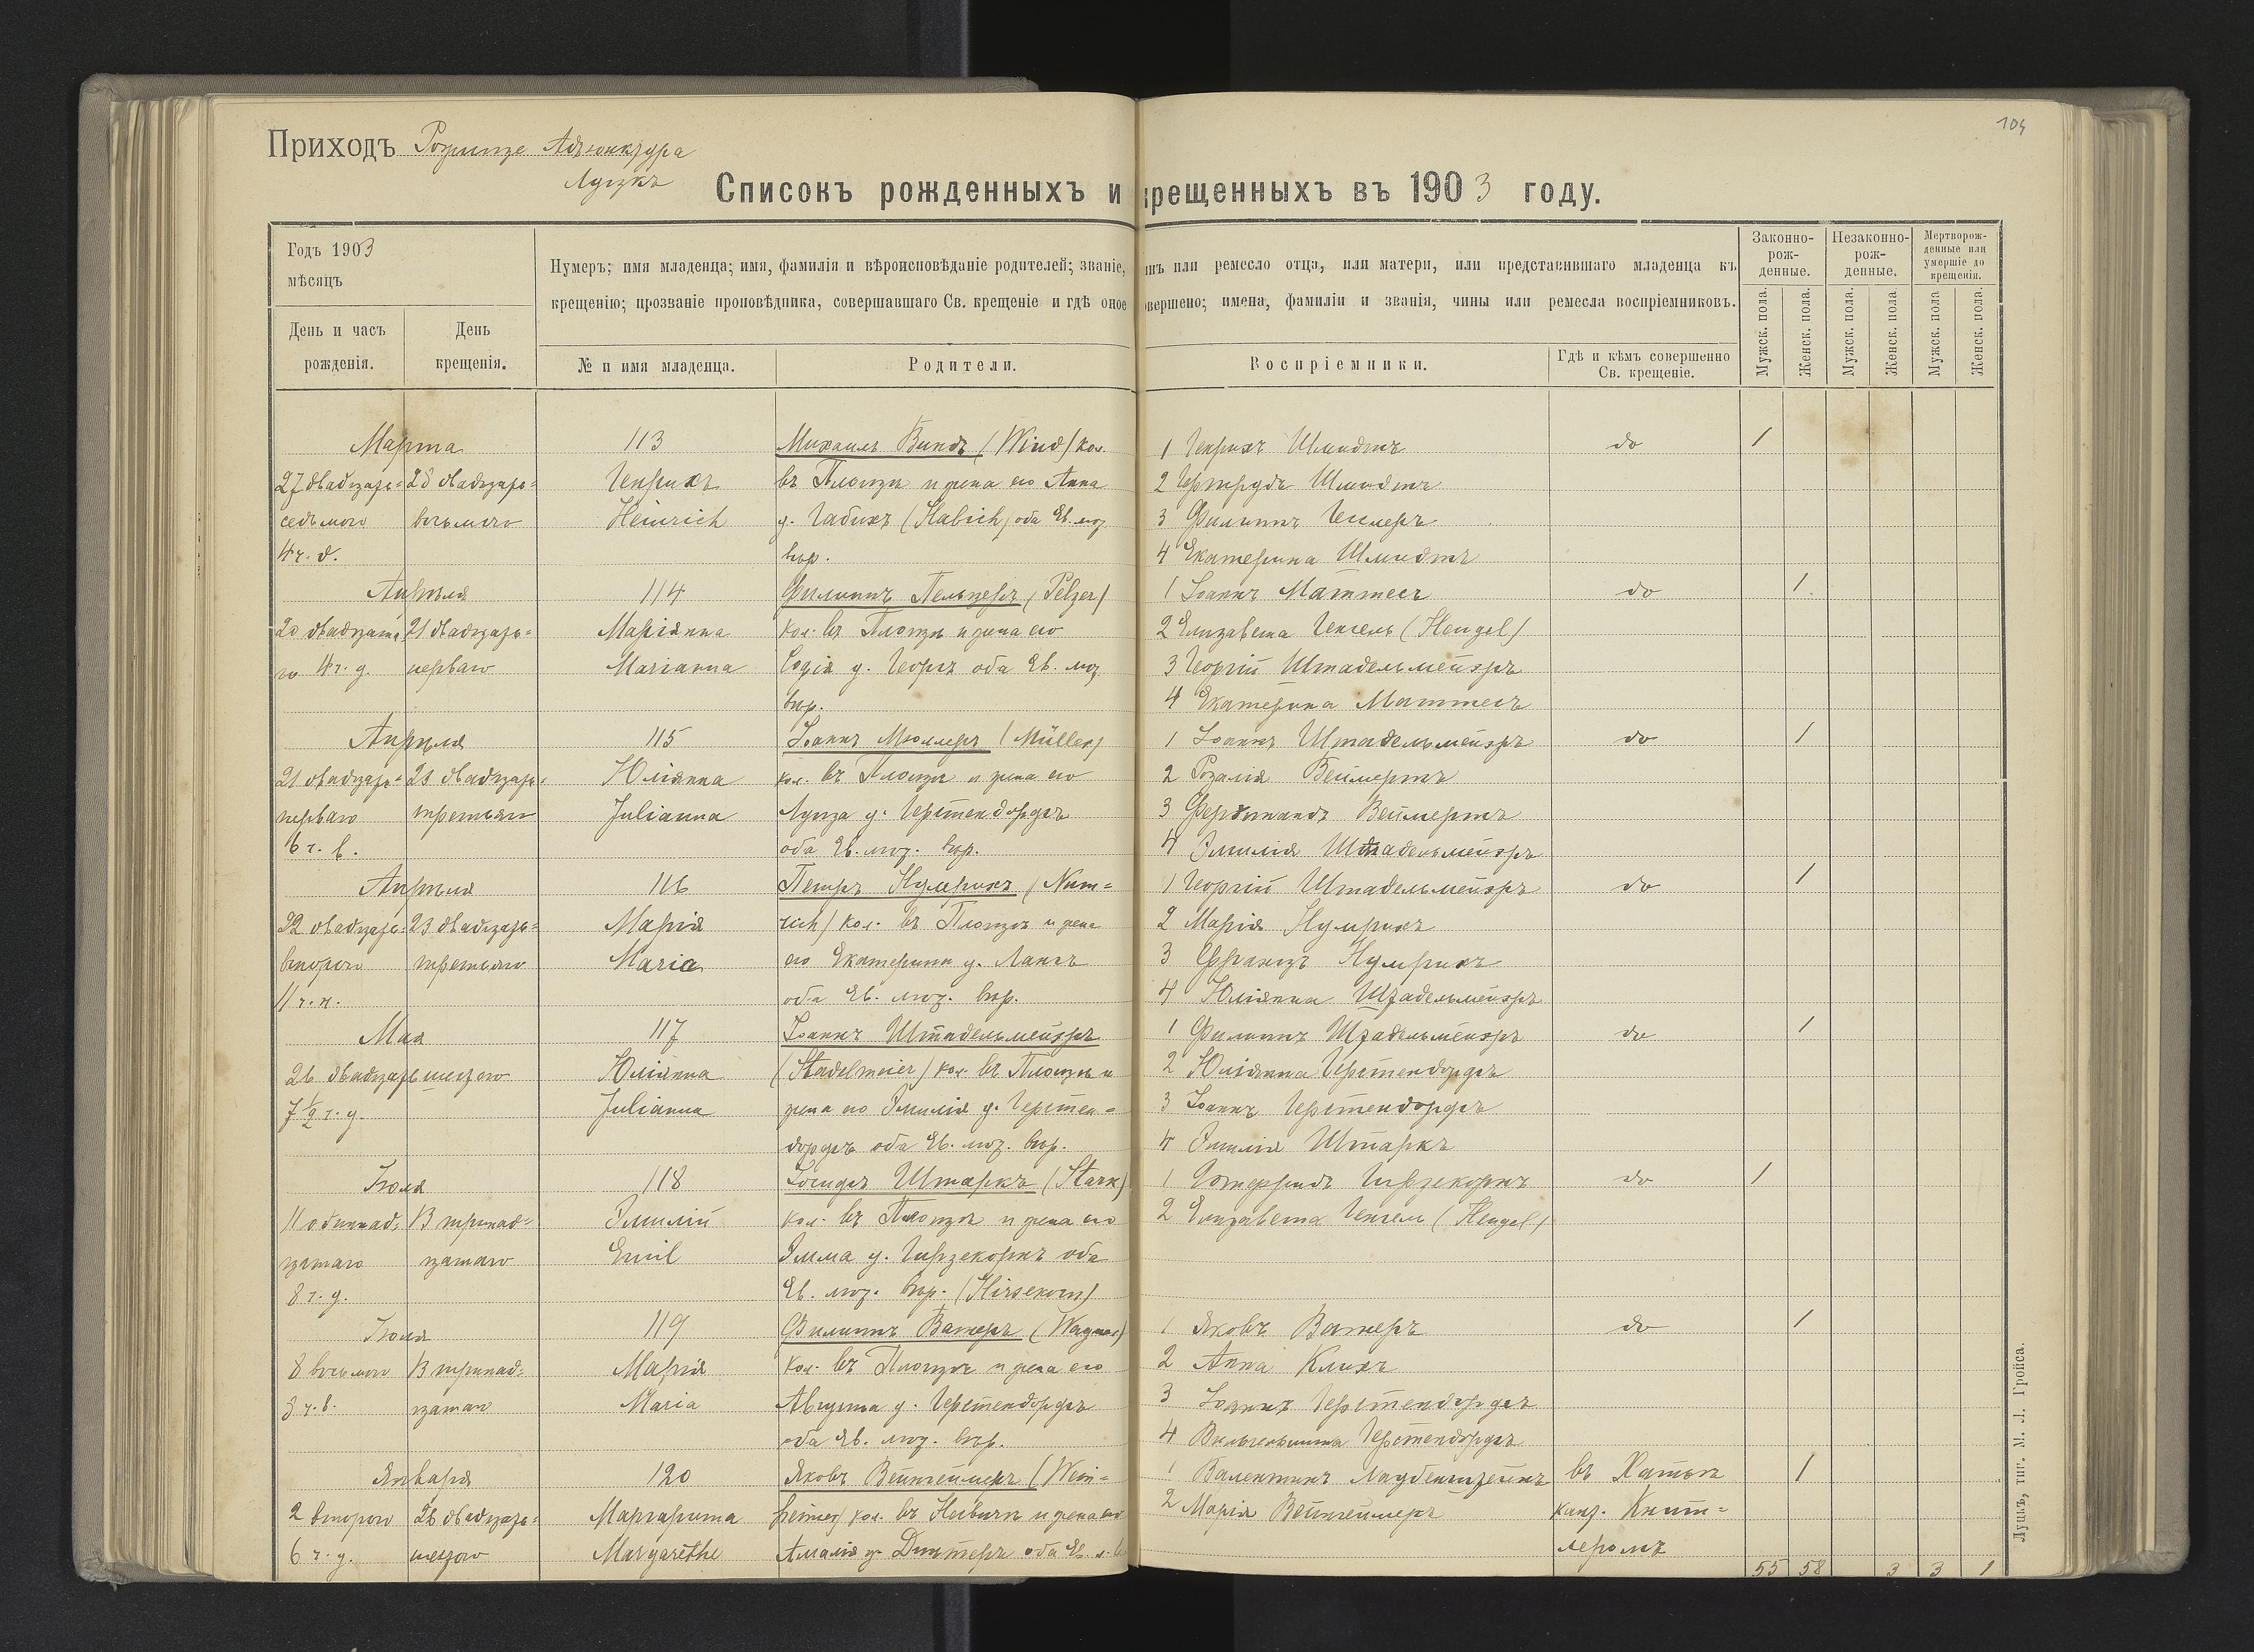 104
Приходъ Рожище Адъюнктура
Луцкъ
Списокъ рожденныхъ и крещенныхъ въ 1903 году.
Годъ 1903
мѣсяцъ
Нумеръ; имя младенца; имя, фамилія и вѣроисповѣданіе родителей; званіе, чинъ или ремесло отца, или матери, или представившаго младенца къ
крещенію; прозваніе проповѣдника, совершавшаго Св. крещеніе и гдѣ оное совершено; имена, фамиліи и званія, чины или ремесла воспріемниковъ.
День и часъ рожденія.
День крещенія.
№ и имя младенца.
Родители.
Воспріемники.
Гдѣ и кѣмъ совершенно Св. крещеніе.
Законно-рож-денные.
Незаконно-рож-денные.
Мертворож-денные или умершіе до крещенія.
Мужск. пола.
Женск. пола.
Мужск. пола.
Женск. пола
Мужск. пола
Женск. пола.
Марта 113 Михаилъ Виндъ (Wind) кол. 1 Генрихъ Шмидтъ do 1
27 двадцать= 28 двадцать= Генрихъ въ Площи и жена его Анна 2 Гертрудъ Шмидтъ
седьмого восьмого Heinrich у. Габихъ (Habich) оба Ев. лют. 3 Филиппъ
4 ч. д. вѣр. 4 Екатерина Шмидтъ
Апрѣля 114 Филиппъ Пельцеръ (Pelzer) 1 Іоаннъ Маттесъ do 1
20 двадцата 21 двадцать= Маріанна кол. въ Площи и жена его 2 Елизавета Генгель (Hengel)
го 4 ч. у. перваго Marianna Софія у. Георгъ оба Ев. лют. 3 Георгій Штадельмейэръ
вѣр. 4 Екатерина Маттесъ
Апрѣля 115 Іоаннъ Мюллеръ (Müller) 1 Іоаннъ Штадельмейэръ do 1
21 двадцать= 23 двадцать= Юліанна кол. въ Площи и жена его 2 Розалія Веймертъ
перваго третьяго Julianna Луиза у. Герстендорфъ 3 Фердинандъ Веймертъ
6 ч. в. оба Ев. лют. вѣр. 4 Эмилія Штадельмейэръ
Апрѣля 116 Петръ Нумрихъ (Num= 1 Георгій Штадельмейэръ do 1
22 двадцать= 23 двадцать= Марія rich) кол. въ Площи и жена 2 Марія Нумрихъ
второго третьяго Maria его Екатерина у. Лангъ 3 Францъ Нумрихъ
11 ч. н. оба Ев. лют. вѣр. 4 Юліанна Штадельмейэръ
Мая 117 Іоаннъ Штадельмейэръ 1 Филиппъ Штадельмейэръ do 1
26 двадцать шестого Юліанна (Stadelmeier) кол. въ Площи и 2 Юліанна Герстендорфъ
7 1/2 ч. у. Julianna жена его Эмилія у. Герстен= 3 Іоаннъ Герстендорфъ
дорфъ оба Ев. лют. вѣр. 4 Эмилія Штаркъ
Іюля 118 Іосифъ Штаркъ (Stark) 1 Готфридъ Гирзекорнъ do 1
11 одиннад= 13 тринад= Эмилій кол. въ Площи и жена его 2 Елизавета Генгель (Hengel)
цатаго цатаго Emil Эмма у. Гирзекорнъ оба
8 ч. у. Ев. лют. вѣр. (Hirsekorn)
Іюля 119 Филиппъ Вагнеръ (Wagner) 1 Яковъ Вагнеръ do 1
8 восьмого 13 тринад= Марія кол. въ Площи и жена его 2 Анна Клихъ
8 ч. в. цатаго Maria Августа у. Герстендорфъ 3 Іоаннъ Герстендорфъ
оба Ев. лют. вѣр. 4 Вильгельмина Герстендорфъ
Января 120 Яковъ Вейнгеймеръ (Wein= 1 Валентинъ Лаубенштейнъ въ 1
2 второго 26 двадцать= Маргарита heimer) кол. въ и жена его 2 Марія Вейнгеймеръ кант. Книт=
6 ч. у. шестого Margarethe Амалія у. Диттеръ оба Ев. л. в. леромъ
55 58 3 3 1
Луцкъ, тип. М. І. Гройса.